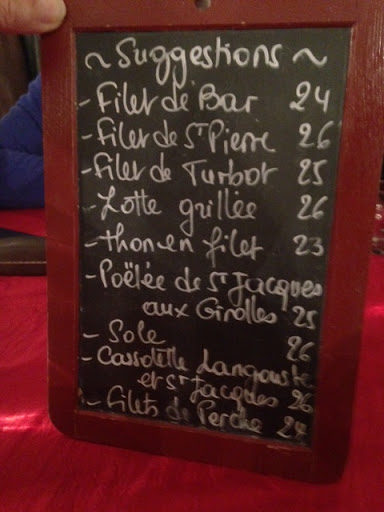 ~ Suggestions ~
- Filet de Bar 24
- Filet de St Pierre 26
- Filet de Turbot 25
- Lotte grillée 26
- thon en filet 23
- Poëlée de St Jacques
aux Girolles 25
- Sole 26
- Cassolette Langouste
et St Jacques 26
- Filets de Perche 24